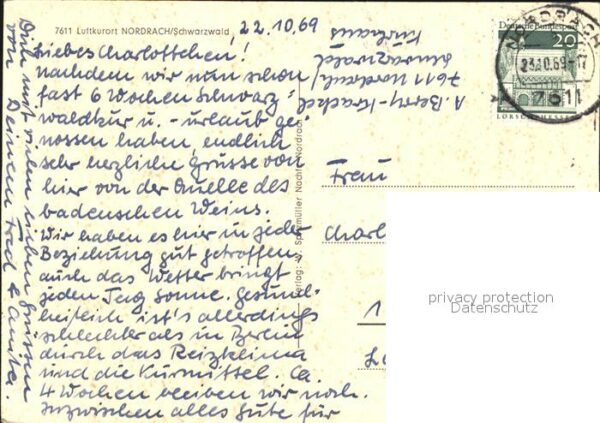 7611 Luftkurort NORDRACH/Schwarzwald
22.10.69
Liebes Charlottchen!
Nachdem wir nun schon
fast 6 Wochen Schwarz-
waldkur u. -urlaub ge-
nossen haben, endlich
sehr herzliche Grüsse von
hier von der Quelle des
badenschen Weins.
Wir haben es hier in jeder
Beziehung gut getroffen,
auch das Wetter bringt
jeden Tag Sonne. Gesund-
heitlich ist's allerdings
schlechter als in Berlin
durch das Reizklima
und die Kurmittel. Ca.
4 Wochen bleiben wir noch.
Inzwischen alles Gute für
Dich mit vielen lieben Grüssen
von Deinem Fred & Anita.
7611 Nordrach/
Schwarzwald
Kurhaus
Deutsche Bundespost
20
LORSCH/HESSEN
NORDRACH
23.10.69-17
7611
Nordrach
Frau
Charl
1
privacy protection
Datenschutz